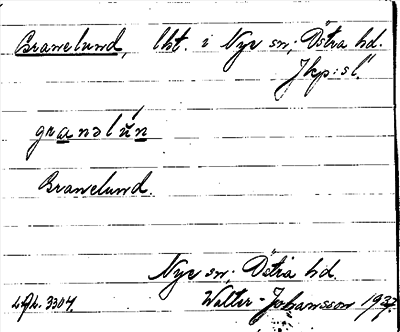 Branelund, lht. i Nye sn; Östra hd.
Jkp:sl.
granəlún
Branelund.
Nye sn; Östra hd.
Lfb. 3304. Walter Johansson 1937.